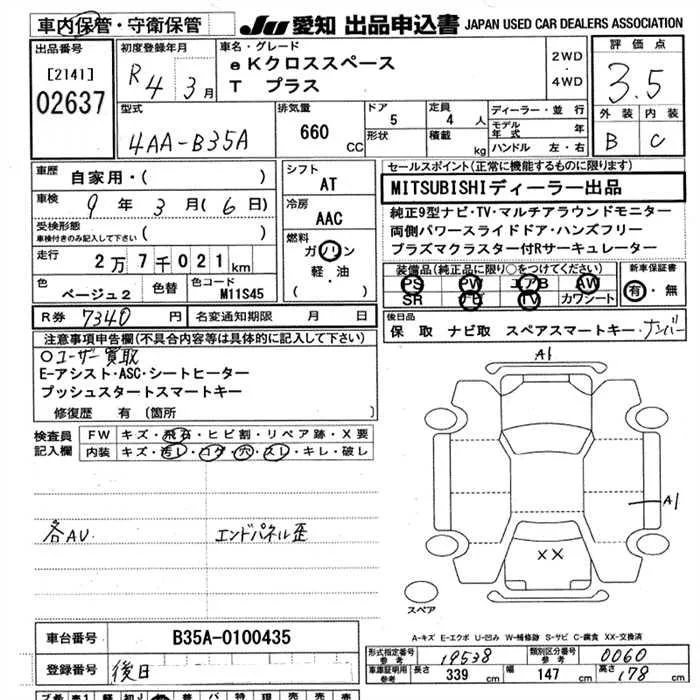 車内保管・守衛保管
JU 愛知 出品申込書 JAPAN USED CAR DEALERS ASSOCIATION
出品番号
[2141]
02637
初度登録年月
R 4 3月
車名・グレード
eKクロススペース
T プラス
2WD
・
4WD
評価点
3.5
外装 内装
B C
型式
4AA-B35A
排気量
660 CC
ドア
5
形状
定員
4 人
積載
kg
ディーラー・並行
モデル年式 年
ハンドル 左・右
車歴
自家用・( )
車検
9 年 3 月 ( 6 日)
受検形態
車検付きのみ記入して下さい ( )
走行
2万 7千021km
色
ベージュ2
色替
色コード
M11S45
シフト
AT
冷房
AAC
燃料
ガソリン
軽・油
( )
セールスポイント(正常に機能するものに限ります)
MITSUBISHIディーラー出品
純正9型ナビ・TV・マルチアラウンドモニター
両側パワースライドドア・ハンズフリー
プラズマクラスター付Rサーキュレーター
装備品(純正品に限り○をつけてください)
PS PW エアB AW
SR ナビ TV カワシート
新車保証書
有・無
R券 7340 円
名変通知期限 月 日
後日品
保 取 ナビ取 スペアスマートキー・ナンバー
注意事項申告欄(不具合内容等は具体的に記入して下さい)
○ユーザー買取
E-アシスト・ASC・シートヒーター
プッシュスタートスマートキー
修復歴 有 (箇所 )
検査員記入欄
FW キズ・飛石・ヒビ割・リペア跡・X要
内装 キズ・汚レ・コゲ・穴・スレ・キレ・破レ
各AU エンドパネル歪
A1
A1
XX
スペア
A-キズ E-エクボ U-凹み W-補修跡 S-サビ C-腐食 XX-交換済
車台番号 B35A-0100435
登録番号 後日
形式指定番号参考 19538
類別区分番号参考 0060
車庫証明用参考 長さ 339 cm 幅 147 cm 高さ 178 cm